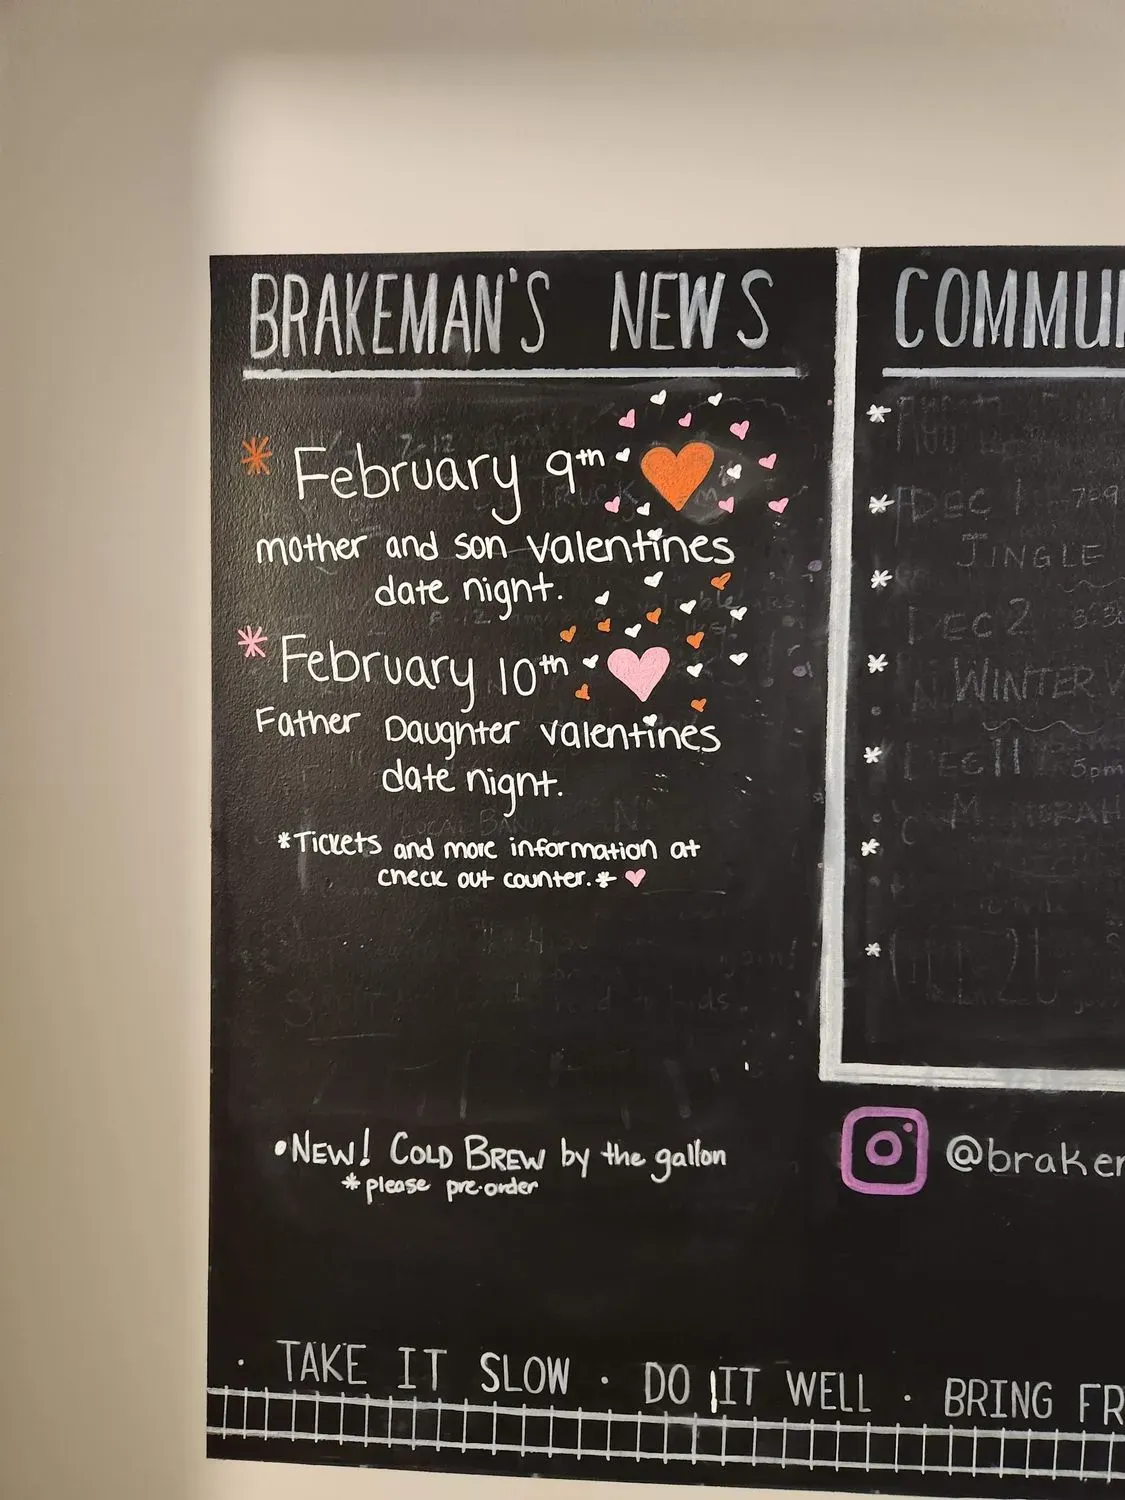 BRAKEMAN'S NEWS
* February 9th
mother and son valentines
date night.
* February 10th
Father Daughter valentines
date night.
*Tickets and more information at
check out counter.*
•NEW! COLD BREW by the gallon
*please pre-order
COMMU
*
* DEC 1
JINGLE
*
DEC 2
* WINTER
* DEC 11
5pm
*
*
@braker
· TAKE IT SLOW · DO IT WELL · BRING FR